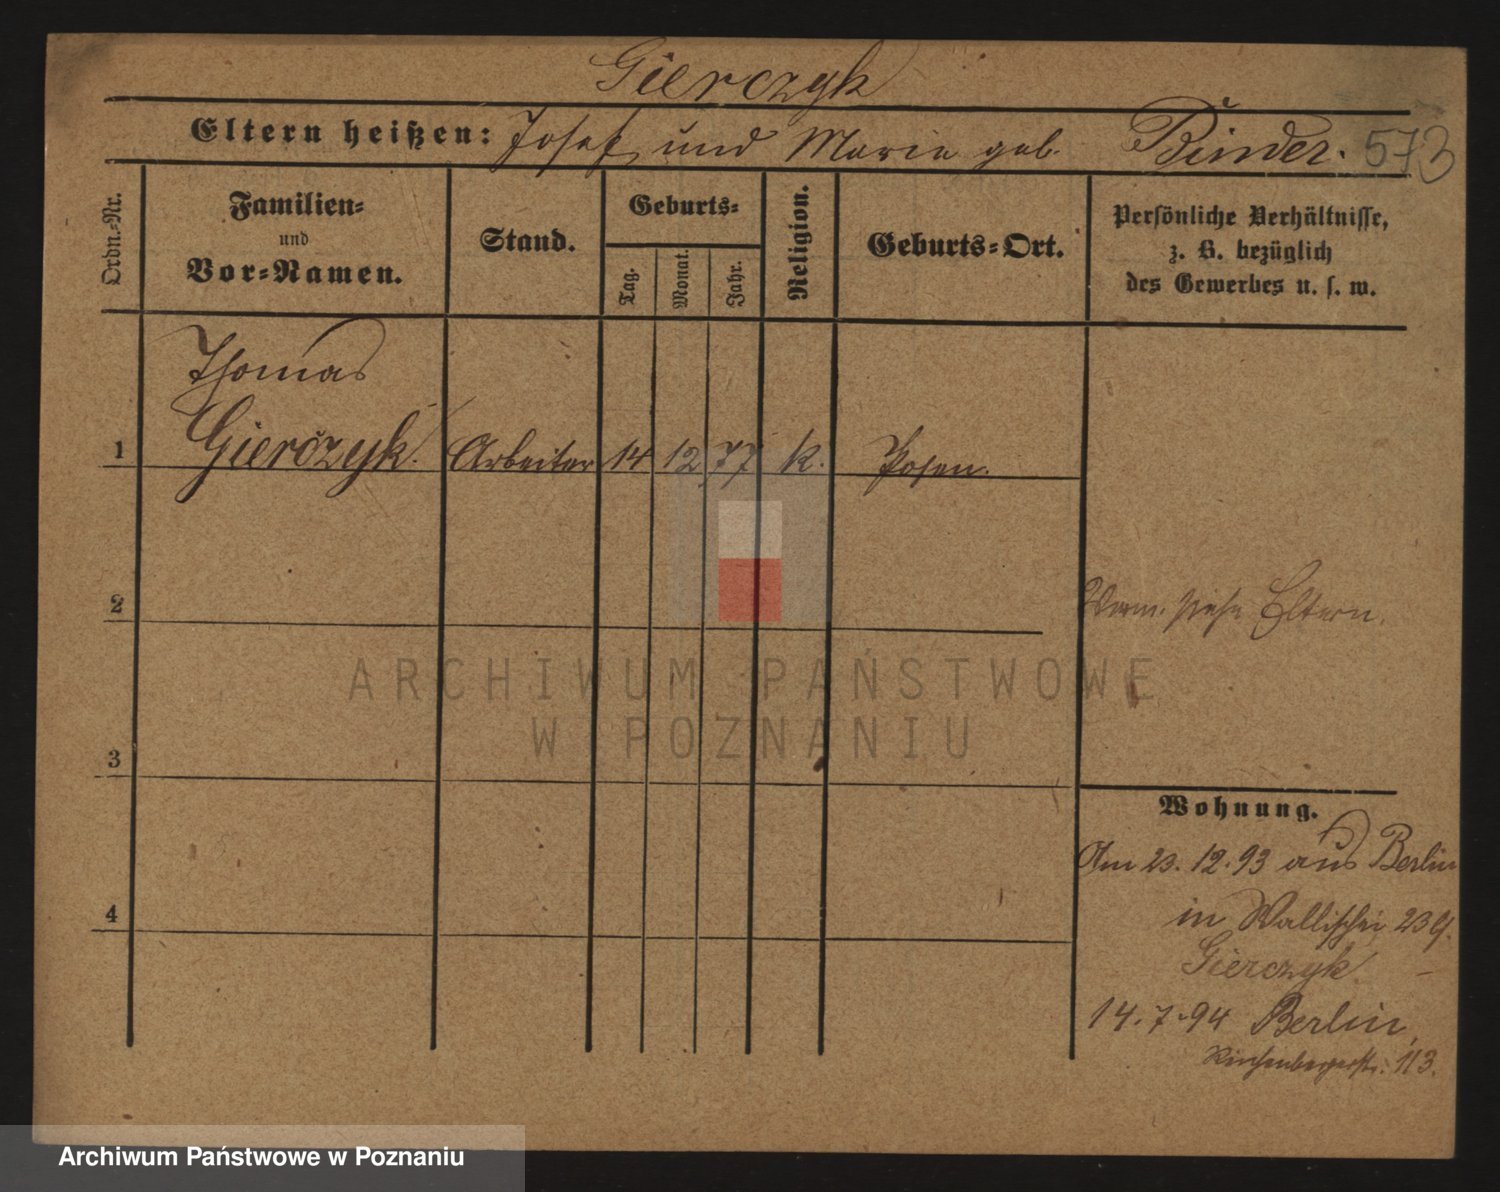 Gierczyk
Eltern heißen: Josef und Marie geb. Binder. 573
Ordn.-Nr.
Familien-
und
Vor-Namen.
Stand.
Geburts-
Tag.
Monat.
Jahr.
Religion.
Geburts-Ort.
Persönliche Verhältnisse,
z. B. bezüglich
des Gewerbes u. s. w.
Thomas
1 Gierczyk. Arbeiter 14 12 77 k. Posen.
2
Verm. siehe Eltern.
3
4
Wohnung.
Am 23.12.93 aus Berlin
in Wallischei 23 b.
Gierczyk
14.7.94 Berlin,
Reichenbergerstr. 113.
ARCHIWUM PAŃSTWOWE
W POZNANIU
Archiwum Państwowe w Poznaniu